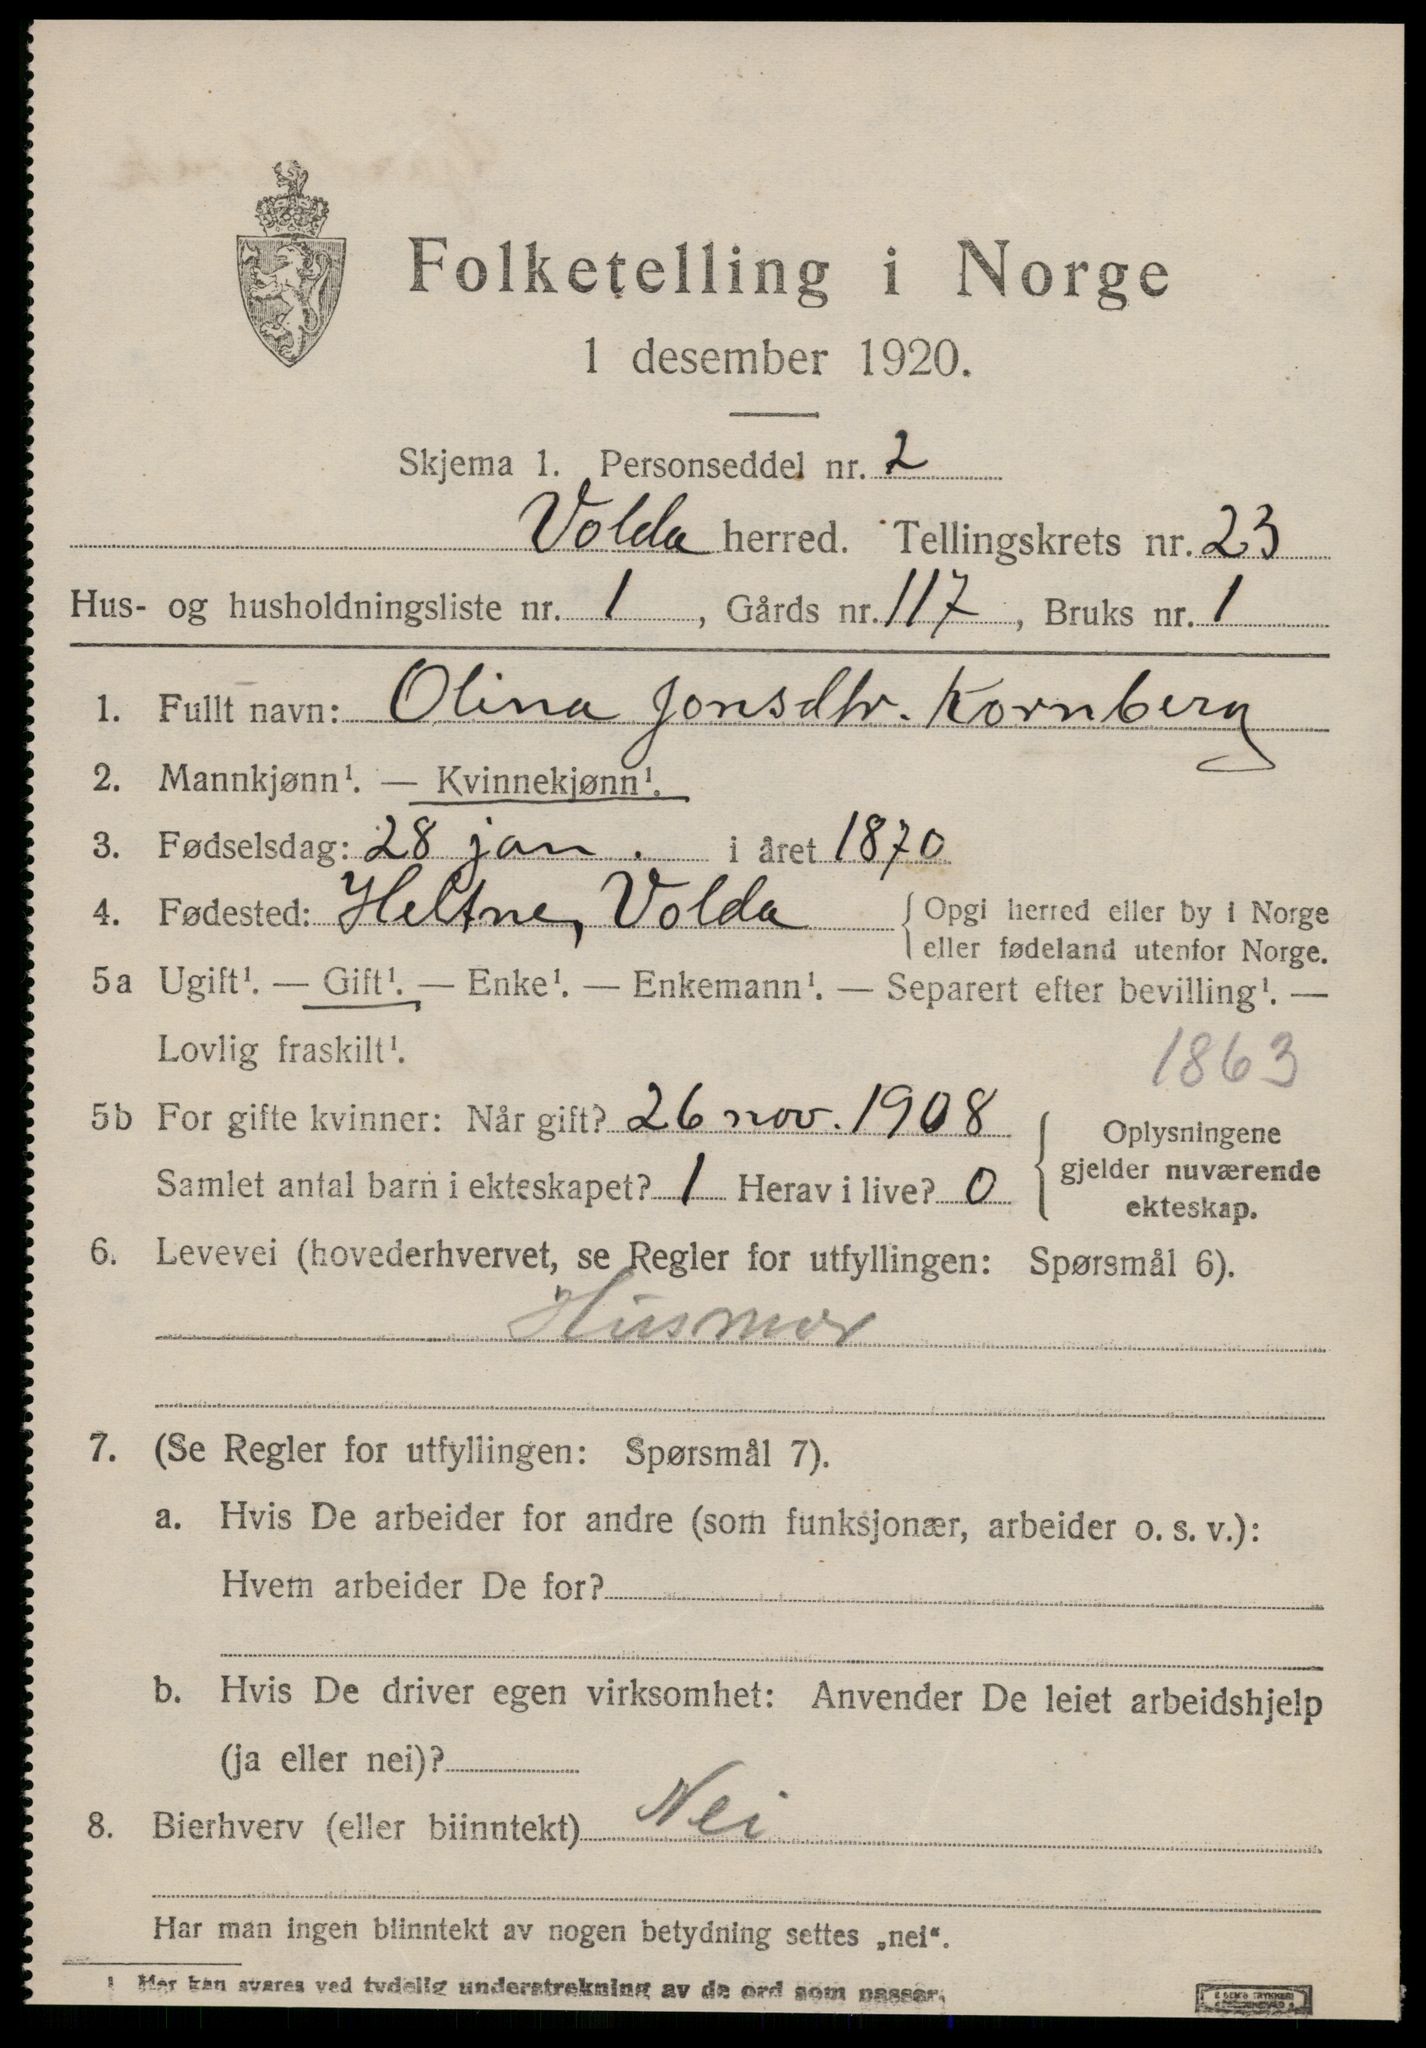 Folketelling i Norge
1 desember 1920.
Skjema 1. Personseddel nr. 2
Volda herred. Tellingskrets nr. 23
Hus- og husholdningsliste nr. 1, Gårds nr. 117, Bruks nr. 1
1. Fullt navn: Olina Jonsdtr. Kornberg
2. Mannkjønn¹. — Kvinnekjønn¹.
3. Fødselsdag: 28 jan. i året 1870
4. Fødested: Heltne, Volda { Opgi herred eller by i Norge
eller fødeland utenfor Norge.
5a Ugift¹. — Gift¹. — Enke¹. — Enkemann¹. — Separert efter bevilling¹. —
Lovlig fraskilt¹.
1863
5b For gifte kvinner: Når gift? 26 nov. 1908
Samlet antal barn i ekteskapet? 1 Herav i live? 0
{ Oplysningene
gjelder nuværende
ekteskap.
6. Levevei (hovederhvervet, se Regler for utfyllingen: Spørsmål 6).
Husmor
7. (Se Regler for utfyllingen: Spørsmål 7).
a. Hvis De arbeider for andre (som funksjonær, arbeider o. s. v.):
Hvem arbeider De for?
b. Hvis De driver egen virksomhet: Anvender De leiet arbeidshjelp
(ja eller nei)?
8. Bierhverv (eller biinntekt) Nei
Har man ingen biinntekt av nogen betydning settes „nei“.
¹ Her kan svares ved tydelig understrekning av de ord som passer.